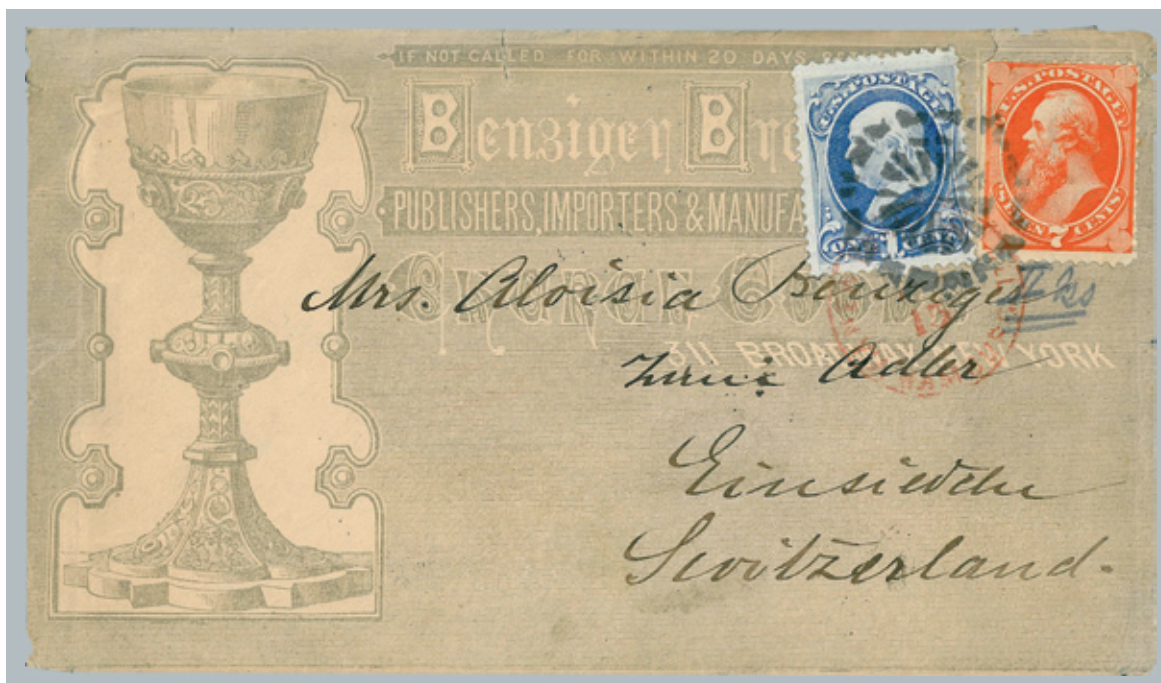 IF NOT CALLED FOR WITHIN 20 DAYS
Benziger
PUBLISHERS, IMPORTERS & MANUFA
311 BROADWAY NEW YORK
U.S. POSTAGE
ONE 1 CENT
U.S. POSTAGE
SEVEN 7 CENTS
Mrs. Aloisia Benziger
Adler
Einsiedeln
Switzerland.